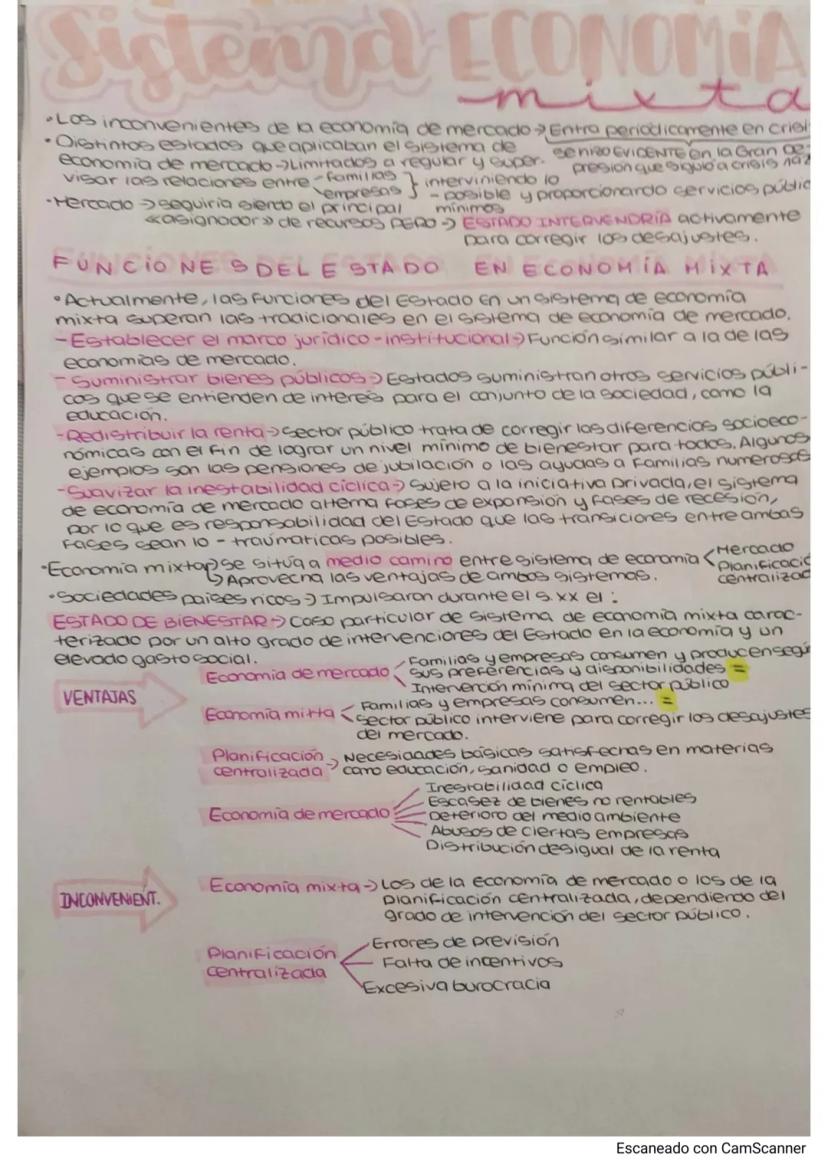 Sistema ECONOMÍA
mixta
•Los inconvenientes de la economía de mercado → Entra periódicamente en crisi
• Distintos estados que aplicaban el sistema de
economía de mercado → Limitados a regular y super-
visar las relaciones entre - familias
empresas } interviniendo lo
- posible y proporcionando servicios públic
mínimos
se hizo EVIDENTE en la Gran De-
presión que siguió a crisis
•Mercado → seguiría siendo el principal
«asignador» de recursos PERO → ESTADO INTERVENDRÍA activamente
para corregir los desajustes.
FUNCIONES DEL ESTADO EN ECONOMÍA MIXTA
•Actualmente, las funciones del Estado en un sistema de economía
mixta superan las tradicionales en el sistema de economía de mercado.
- Establecer el marco jurídico-institucional → Función similar a la de las
economías de mercado.
- Suministrar bienes públicos → Estados suministran otros servicios públi-
cos que se entienden de interés para el conjunto de la sociedad, como la
educación.
- Redistribuir la renta → sector público trata de corregir las diferencias socioeco-
nómicas con el fin de lograr un nivel mínimo de bienestar para todos. Algunos
ejemplos son las pensiones de jubilación o las ayudas a familias numerosas
- Suavizar la inestabilidad cíclica → Sujeto a la iniciativa privada, el sistema
de economía de mercado alterna fases de expansión y fases de recesión,
por lo que es responsabilidad del Estado que las transiciones entre ambas
fases sean lo - traumáticas posibles.
•Economía mixta → se sitúa a medio camino entre sistema de economía < Mercado
Planificació
centralizad
↳ Aprovecha las ventajas de ambos sistemas.
•Sociedades países ricos → Impulsaron durante el s. XX el :
ESTADO DE BIENESTAR → Caso particular de sistema de economía mixta carac-
terizado por un alto grado de intervenciones del Estado en la economía y un
elevado gasto social.
VENTAJAS
Economía de mercado
Familias y empresas consumen y producen segú
sus preferencias y disponibilidades =
Intervención mínima del sector público
Economía mixta
Familias y empresas consumen... =
Sector público interviene para corregir los desajustes
del mercado.
Planificación
centralizada
→ Necesidades básicas satisfechas en materias
como educación, sanidad o empleo.
INCONVENIENT.
Economía de mercado
Inestabilidad cíclica
Escasez de bienes no rentables
Deterioro del medio ambiente
Abusos de ciertas empresas
Distribución desigual de la renta
Economía mixta → Los de la economía de mercado o los de la
planificación centralizada, dependiendo del
grado de intervención del sector público.
Planificación
centralizada
Errores de previsión
Falta de incentivos
Excesiva burocracia
Escaneado con CamScanner